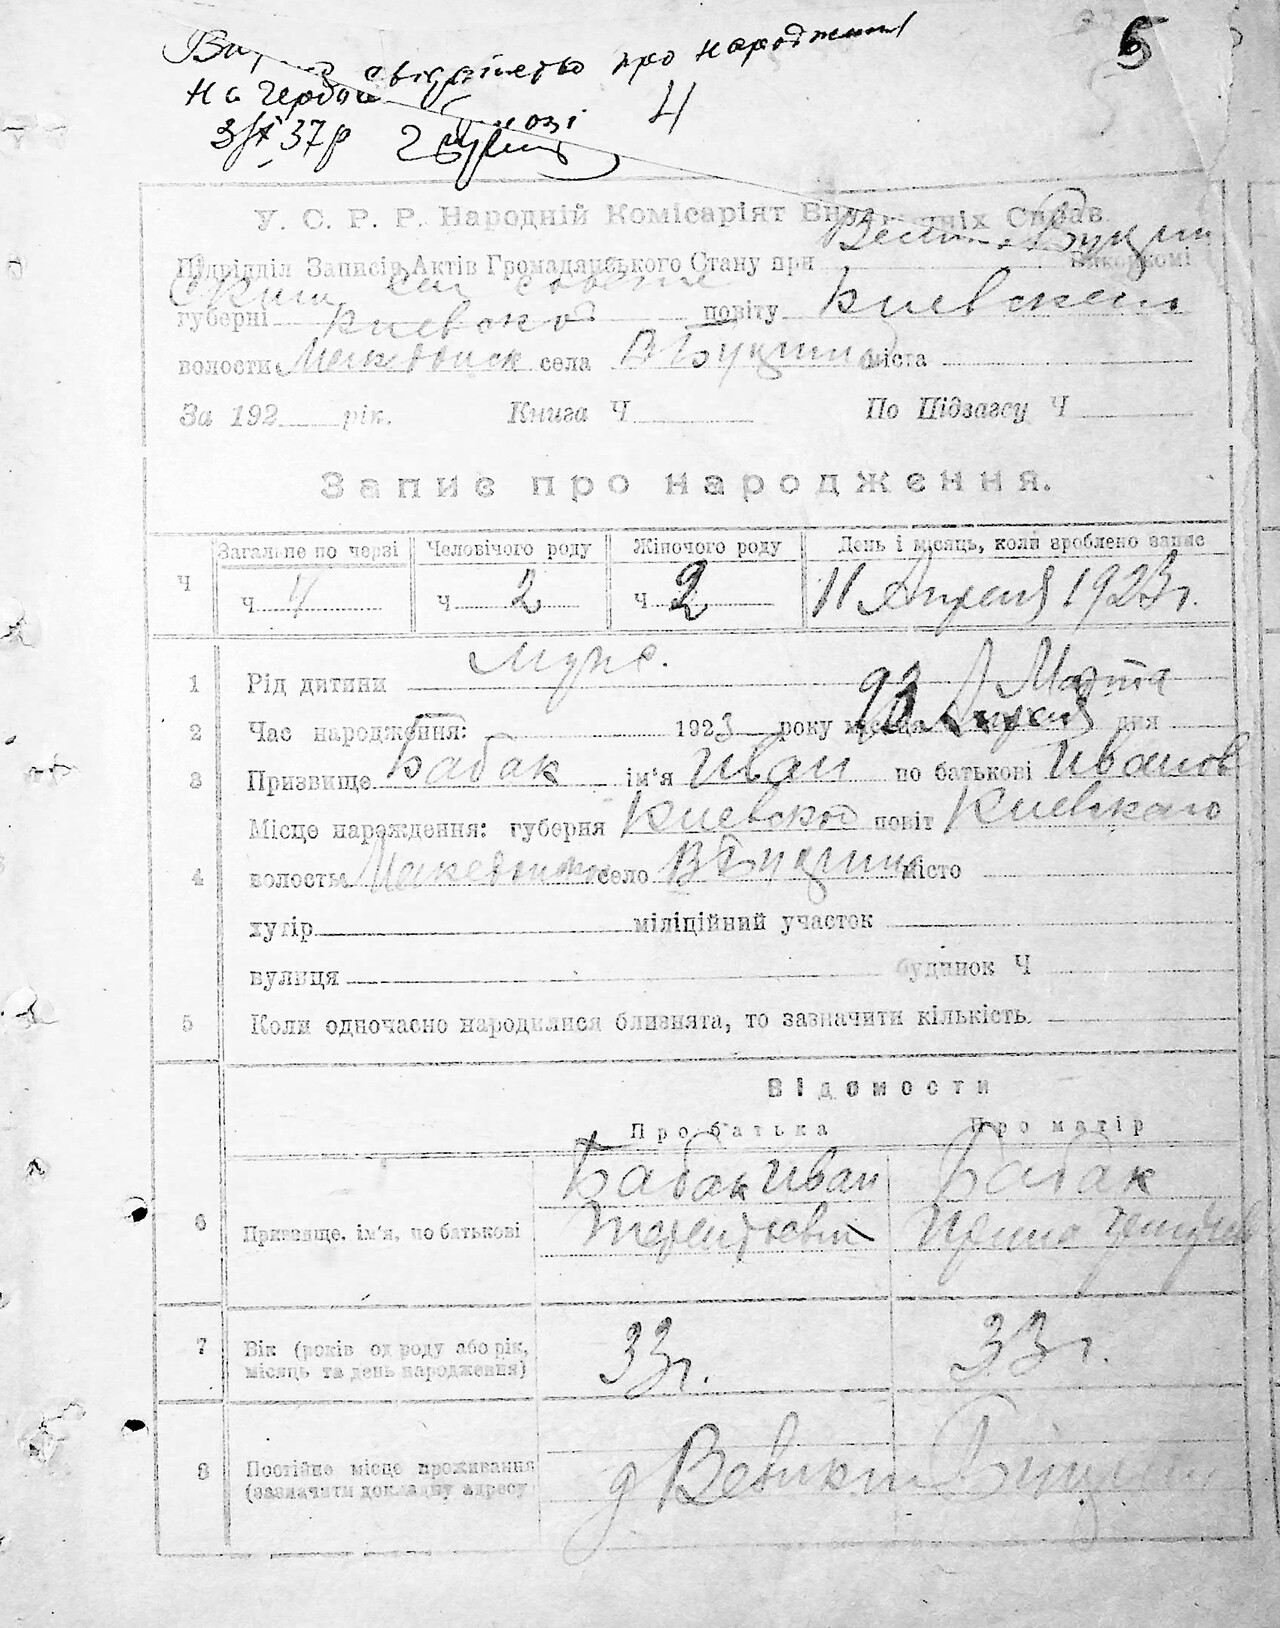 5
свидетство про народжиния
На Гербов
4
3/І 37р
У. С. Р. Р. Народній Комісаріят Внутрішніх Справ.
Підрідділ Записів Актів Громадянського Стану при Виконкомі
губерні Киевской повіту Киевскаго
волости села міста
За 192 рік. Книга Ч По Підзагсу Ч
Запис про народження.
Загальне по черзі Человічого роду Жіночого роду День і місяць, коли зроблено запис
Ч ч 4 ч 2 ч 2 11 Апреля 1923 г.
1 Рід дитини муж.
Марта
2 Час народження: 1923 року місяця дня
3 Призвище Бабак ім'я Иван по батькові Иванов
Місце народження: губерня Киевской повіт Киевскаго
4 волость село місто
хутір міліційний участок
вулиця будинок Ч
5 Коли одночасно народилися близнята, то зазначити кількість
Відомости
Про батька Про матір
Бабак Иван Бабак
6 Призвище, ім'я, по батькові Терентьевич Ирина
7 Вік (років од роду або рік, місяць та день народження) 33 г. 33 г.
8 Постійне місце проживання (зазначити докладну адресу)